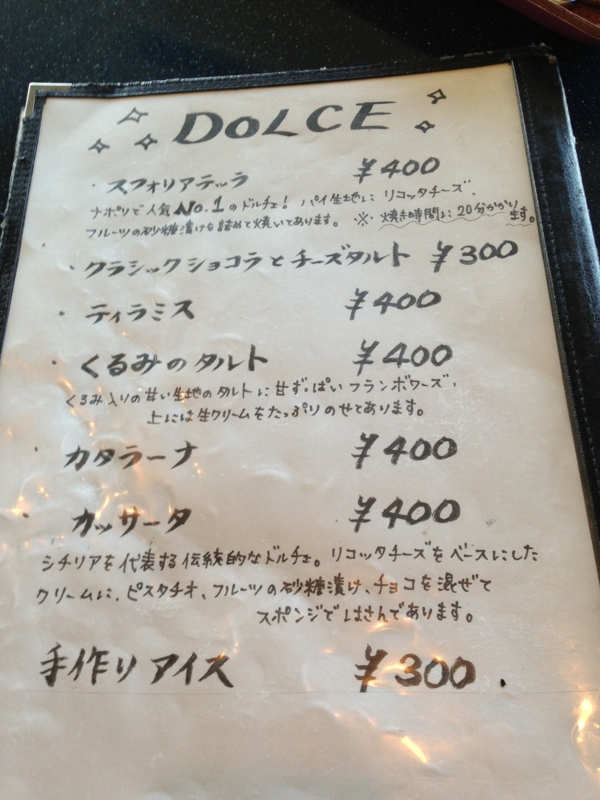 DOLCE
・スフォリアテッラ ¥400
ナポリで人気No.1のドルチェ! パイ生地に リコッタチーズ、
フルーツの砂糖漬けを詰めて焼いてあります。 ※焼き時間に20分かかります。
・クラシックショコラとチーズタルト ¥300
・ティラミス ¥400
・くるみのタルト ¥400
くるみ入りの甘い生地のタルトに甘ずっぱいフランボワーズ、
上には生クリームをたっぷりのせてあります。
カタラーナ ¥400
・カッサータ ¥400
シチリアを代表する伝統的なドルチェ。リコッタチーズをベースにした
クリームに、ピスタチオ、フルーツの砂糖漬け、チョコを混ぜて
スポンジではさんであります。
手作りアイス ¥300.